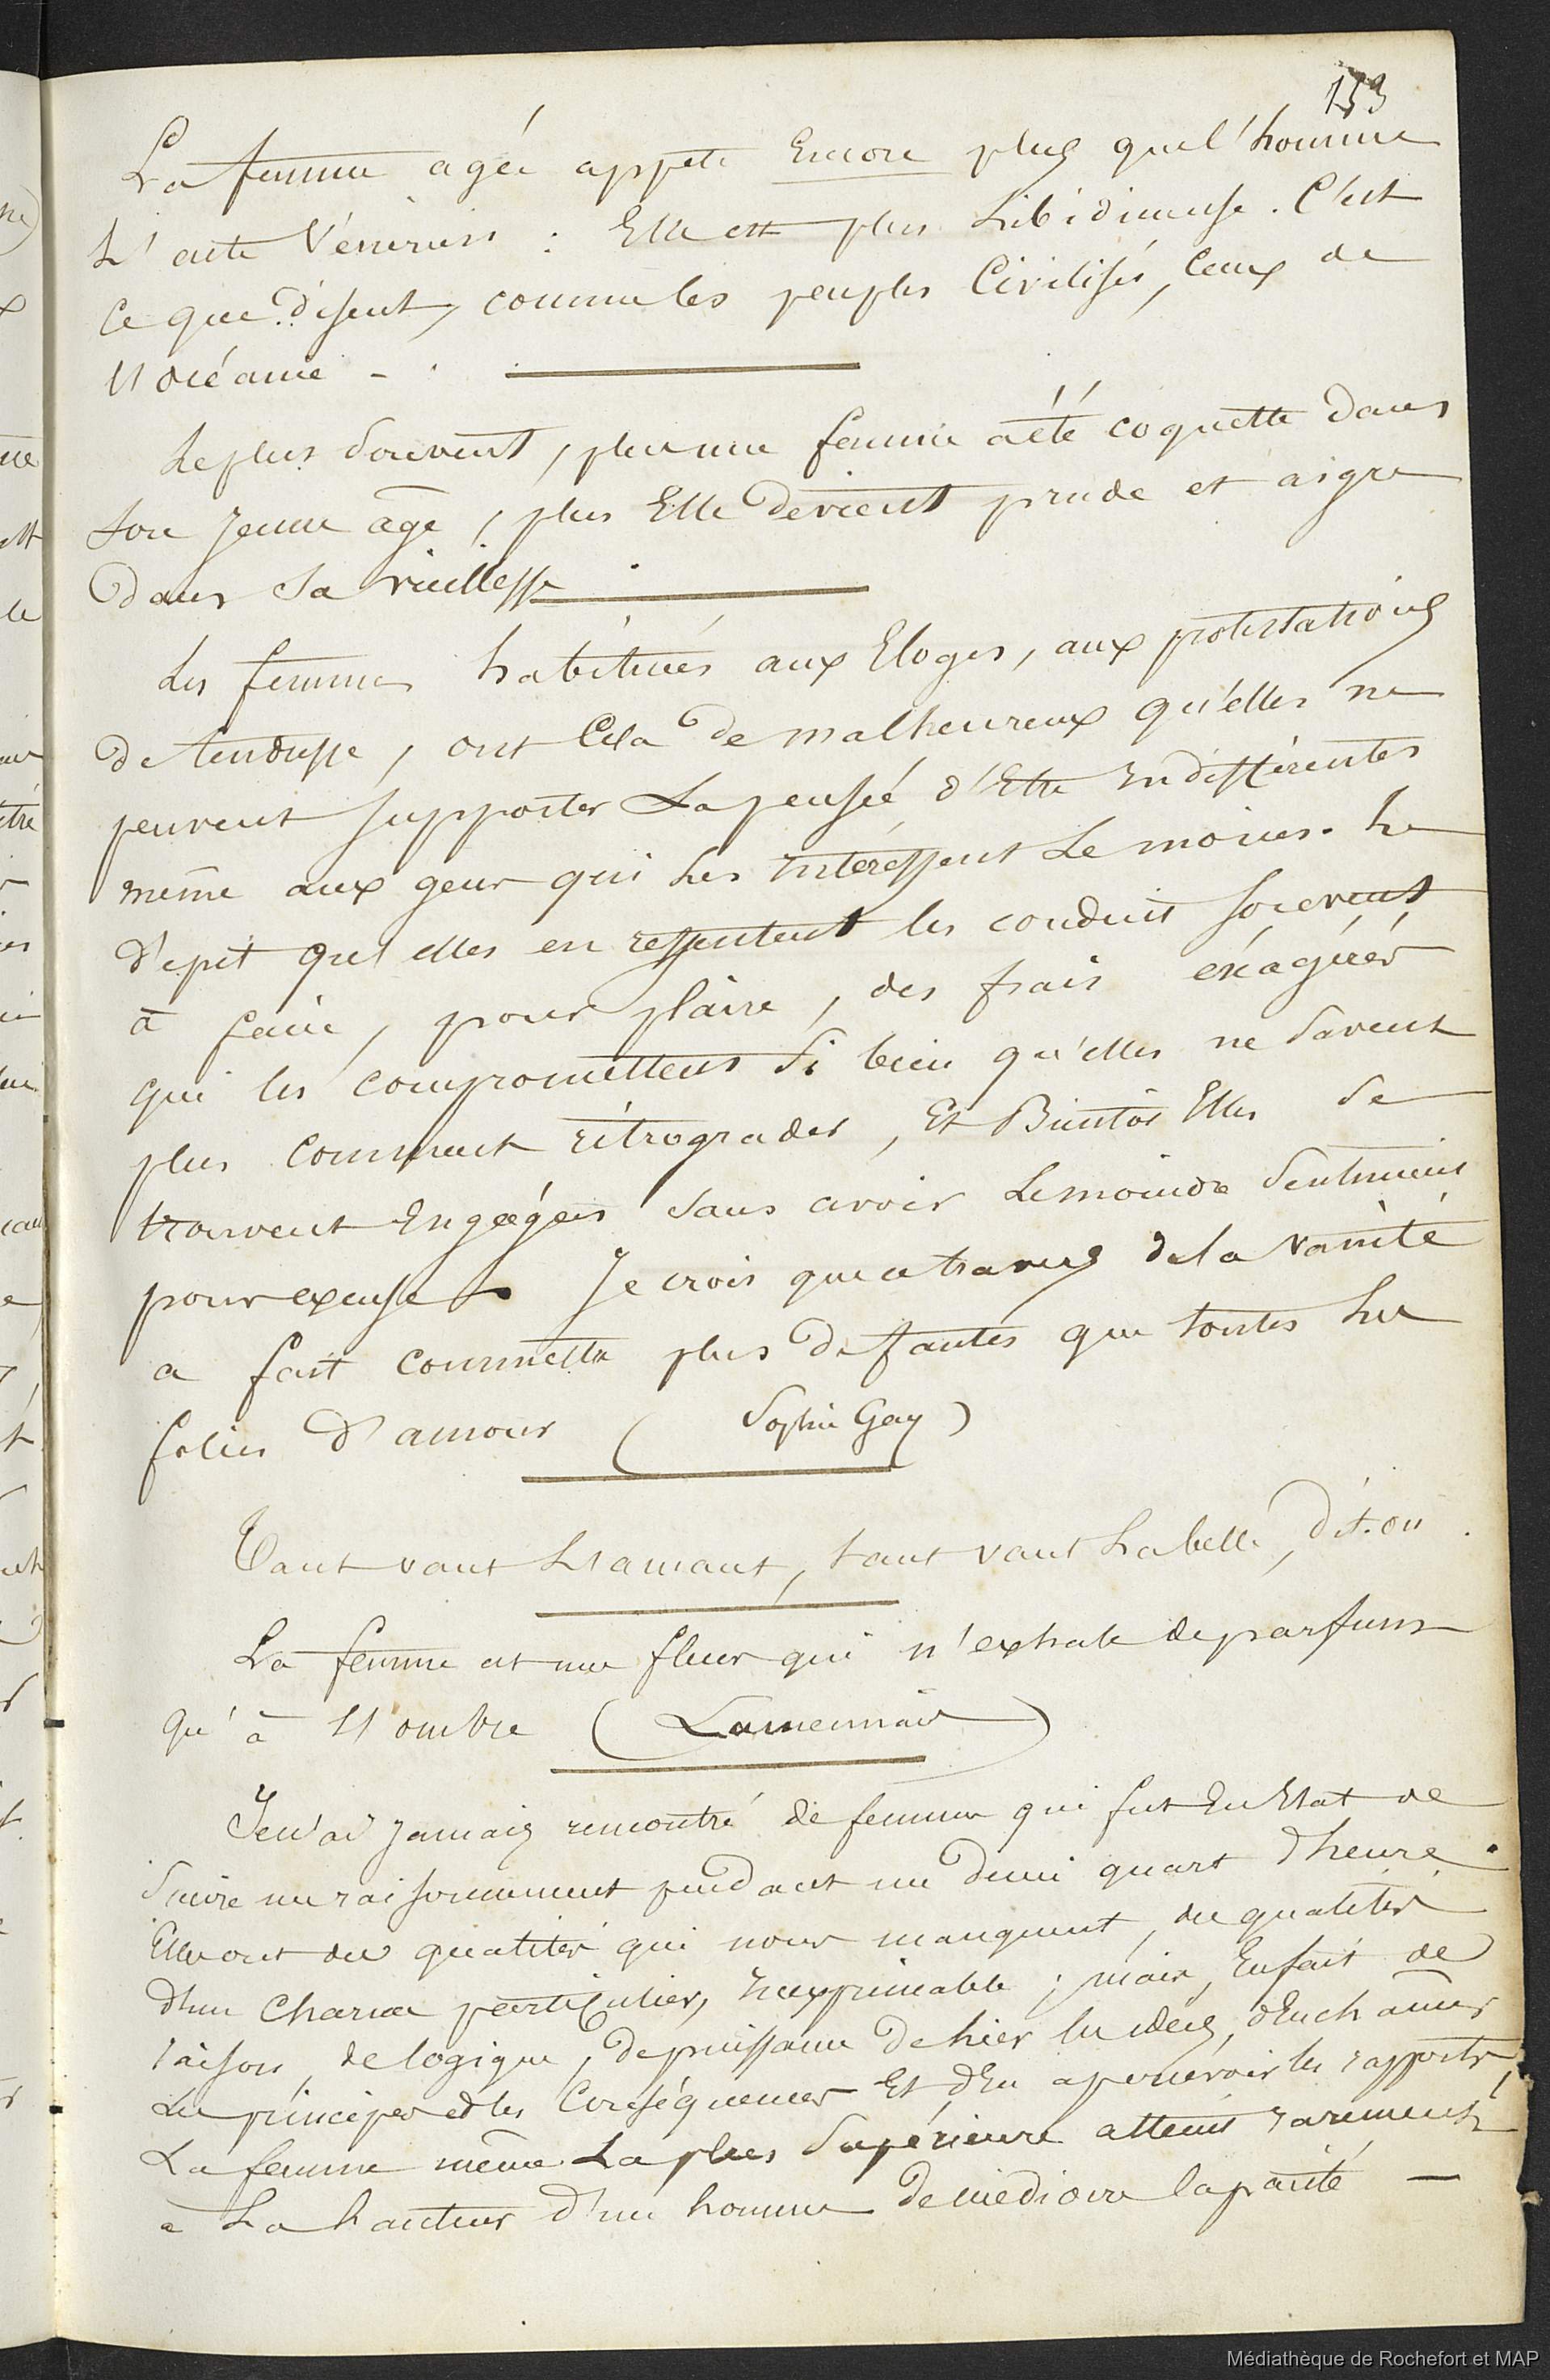 153
La femme agée appète Encore plus que l'homme
L'acte Vénérien : Elle est plus Libidineuse. C'est
Ce que disent, comme les peuples Civilisés, Ceux de
l'océanie -
Le plus Souvent, plus une femme a été coquette dans
Son Jeune âge, plus Elle Devient prude et aigre
Dans Sa vieillesse
Les femmes habituées aux Eloges, aux protestations
De tendresse, ont Cela De malheureux qu'elles ne
peuvent supporter La pensée d'Etre Indifférentes
même aux gens qui Les Intéressent Le moins. Le
dépit qu'elles en ressentent les conduit souvent
à faire, pour plaire, des frais exagérés
qui les compromettent Si bien qu'elles ne Savent
plus Comment rétrograder, Et Bientôt Elles Se
trouvent Engagées Sans avoir Le moindre Sentiment
pour excuse. Je crois que ce travers De la Vanité
a fait Commettre plus De fautes que toutes Les
folies D'amour ( Sophie Gay )
Tant vaut L'amant, tant vaut La belle, Dit-on.
La femme est une fleur qui n'exhale de parfum
qu'à l'ombre ( Lamennais )
Je n'ai Jamais rencontré de femme qui fut En Etat de
Suivre un raisonnement pendant un Demi quart D'heure.
Elles ont des qualités qui nous manquent, des qualités
D'un Charme particulier, Inexprimable ; mais, En fait de
raison, de logique, De puissance De lier les idées, d'Enchaîner
Les principes et les Conséquences Et d'En apercevoir les rapports,
La femme même La plus Supérieure atteint rarement
à La hauteur D'un homme De médiocre Capacité —
Médiathèque de Rochefort et MAP